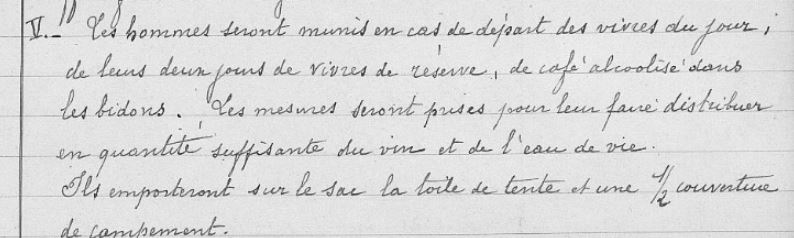 V.- Les hommes seront munis en cas de départ des vivres du jour,
de leurs deux jours de vivres de réserve, de café alcoolisé dans
les bidons. Les mesures seront prises pour leur faire distribuer
en quantité suffisante du vin et de l'eau de vie.
Ils emporteront sur le sac la toile de tente et une 1/2 couverture
de campement.